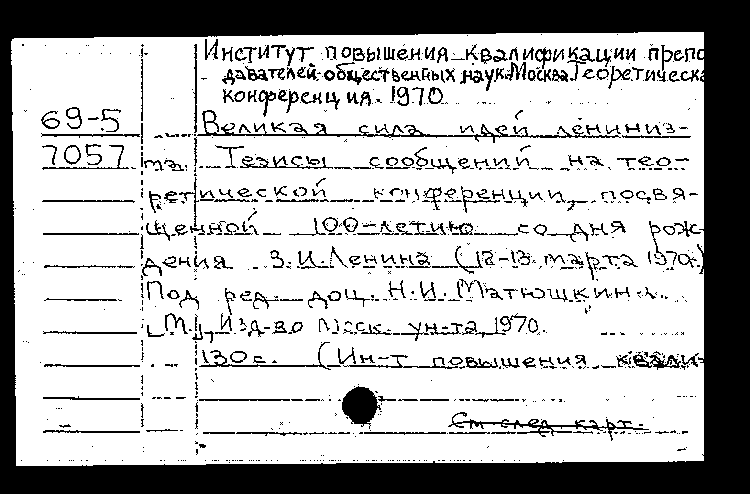 Институт повышения квалификации препо
давателей общественных наук. Москва. Теоретическа
конференция. 1970
69-5 Великая сила идей лениниз-
7057 ма. Тезисы сообщений на тео-
ретической конференции, посвя-
щенной 100-летию со дня рож
дения В.И. Ленина (12-13 марта 1970г.)
Под ред. доц. Н.И. Матюшкина.
[М.], Изд-во Моск. ун-та, 1970.
130с. (Ин-т повышения квали-
См след карт.